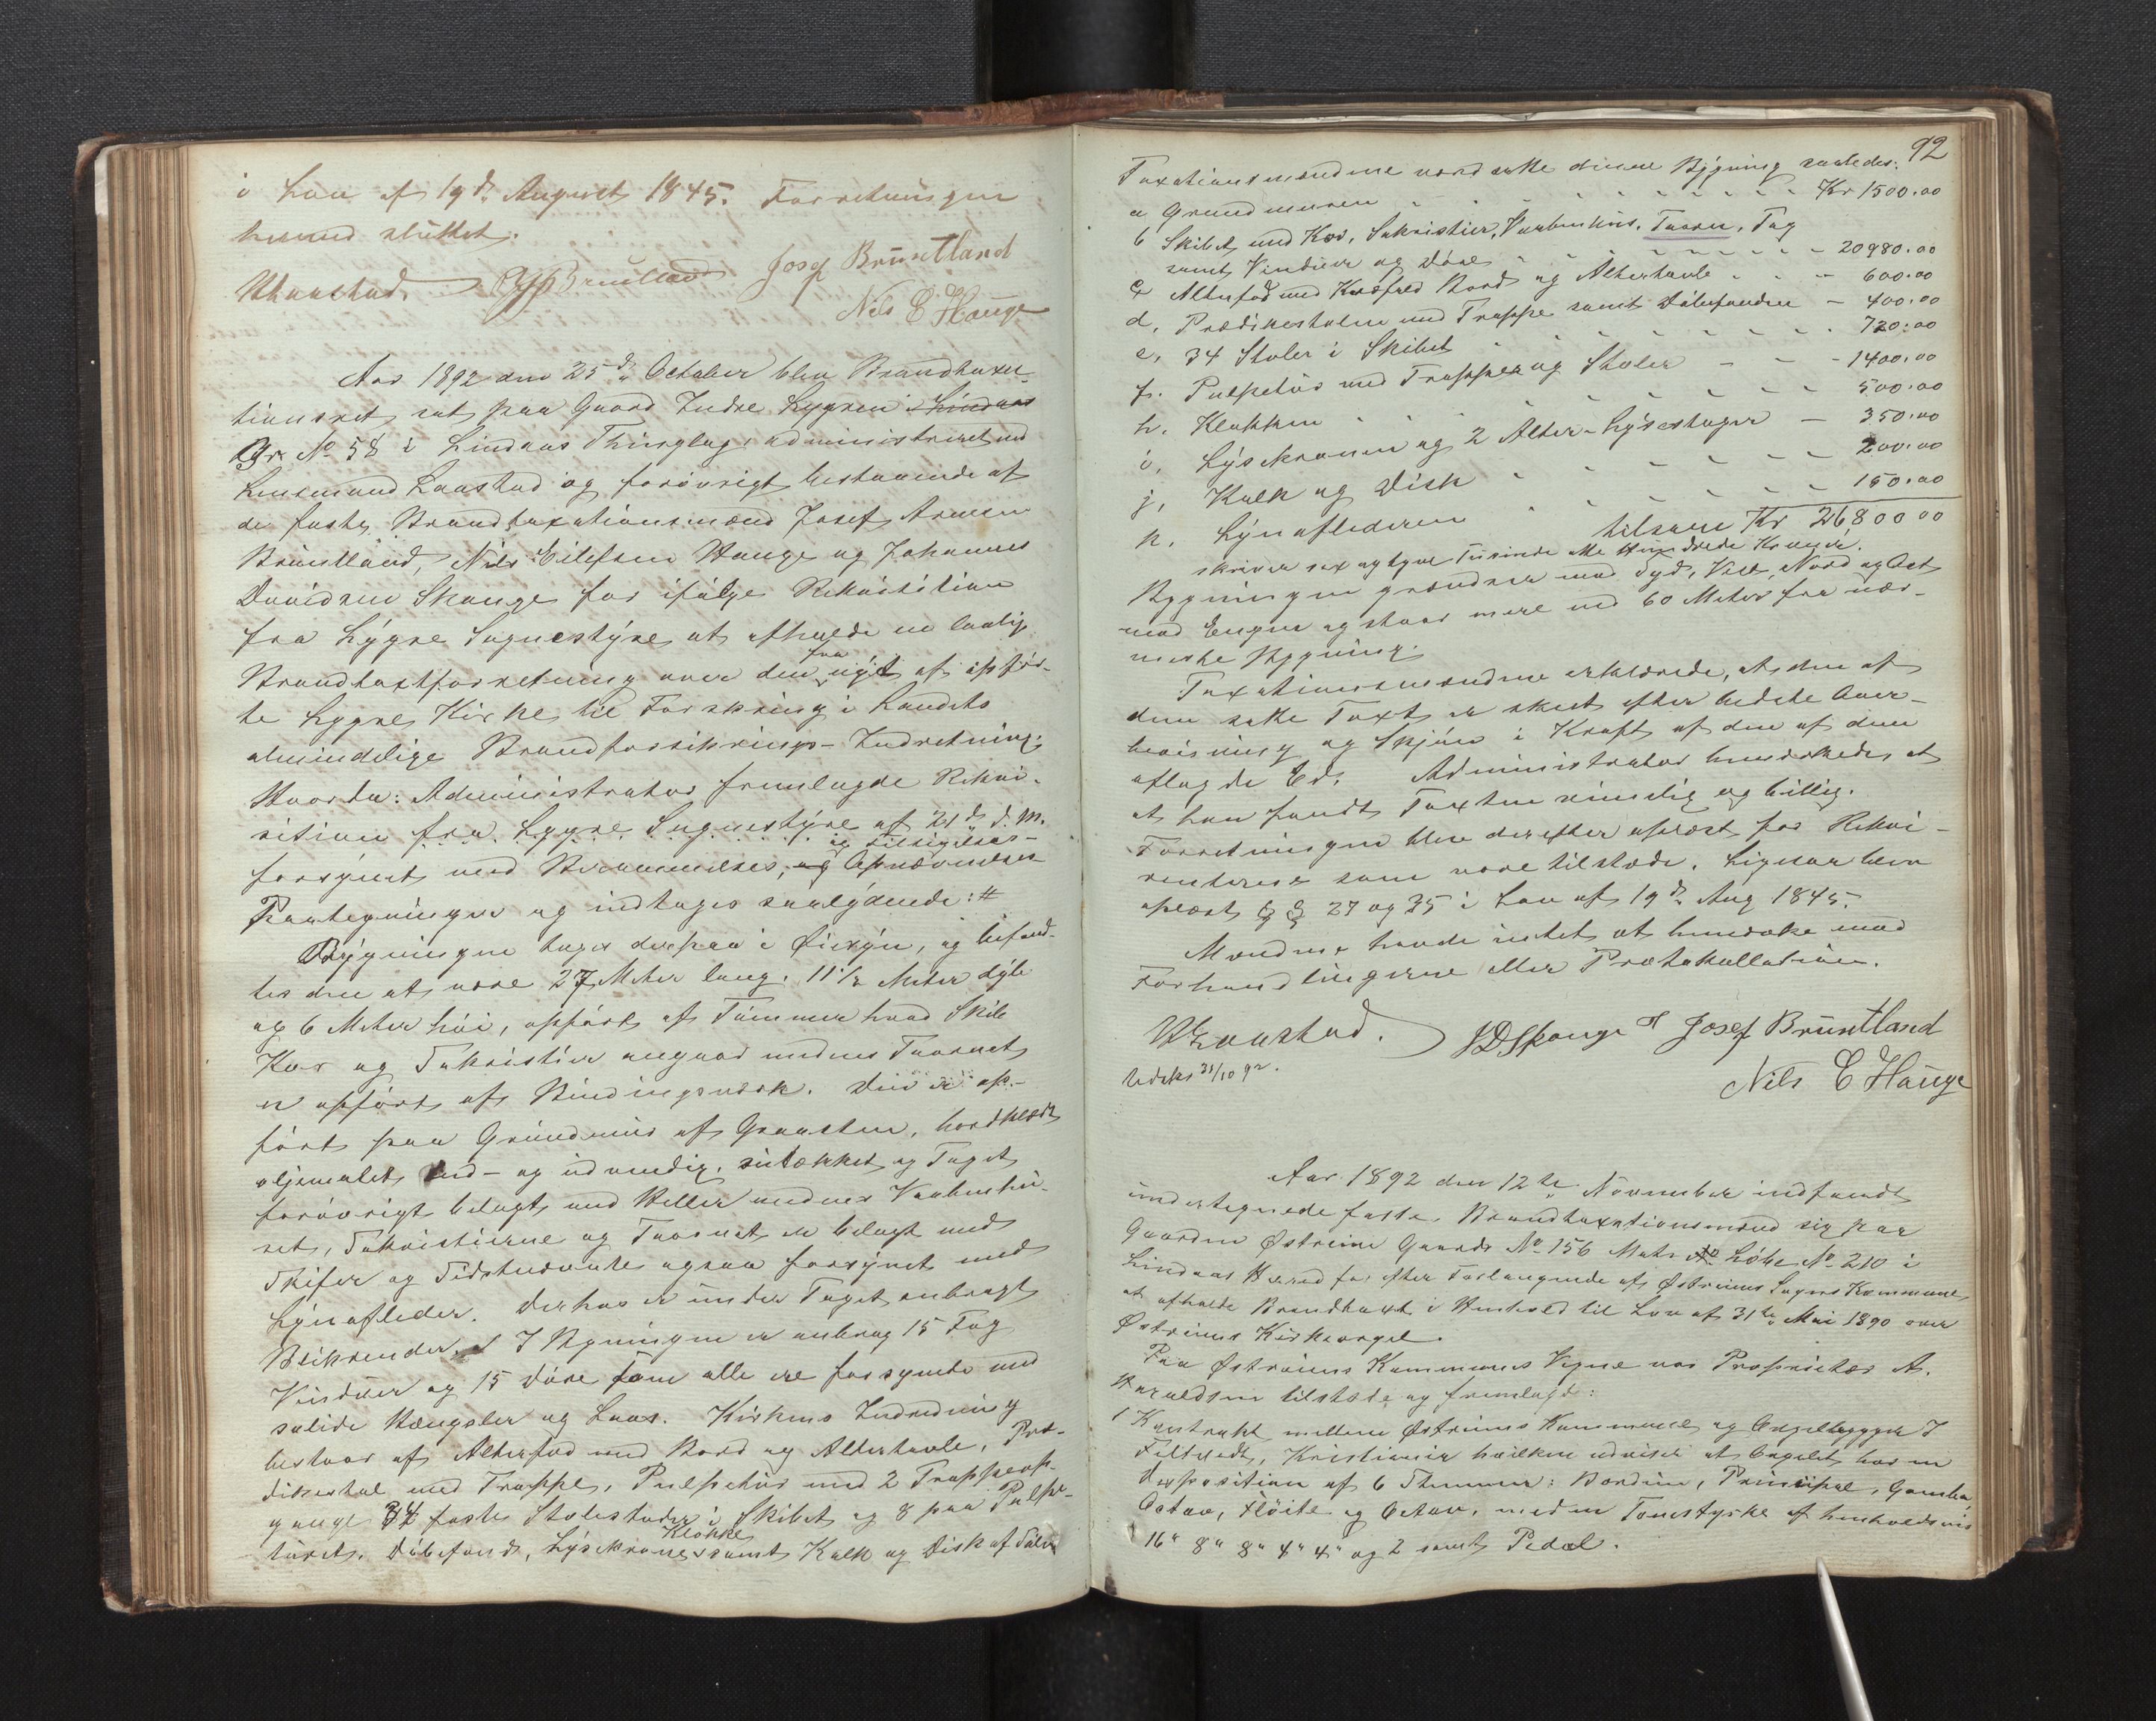 i Lov af 19de August 1845. Forretningen
hermed sluttet.
Josef Brundtland
Nils E Hauge
Aar 1892 den 25de October blev Brandtaxa-
tionsret sat paa Gaard Indre Lygren i Lindaas
Gr No 58 i Lindaas Thinglag, administreret ved
Lensmand Laastad og forøvrigt bestaaende af
de faste Brandtaxationsmænd Josef Arnesen
Brundtland, Nils Eilefsen Hauge og Johannes
Davidsen Skauge for ifølge Rekvisition
fra Lygre Sognestyre at afholde en lovlig
Brandtaxtforretning over den fra nyt af opfør-
te Lygre Kirke til Forsikring i Landets
almindelige Brandforsikrings-Indretning.
Hvorda: Administrator fremlagde Rekvi-
sition fra Lygre Sognestyre af 21de d. M.
forsynet med Berammelses, og Opnævnelses- og Tilsigelses-
Paategninger og indtages saalydende: #
Bygningen toges derpaa i Øiesyn, og befand-
tes den at være 27 Meter lang, 11 1/2 Meter dyb
og 6 Meter høi, opført af Tømmer hvad Skib
Kor og Sakristier angaar medens Taarnet
er opført af Bindingsværk. Den er op-
ført paa Grundmur af Graasten, bordklædt
oljemalet ind- og udvendig, sutækket og Taget
forøvrigt belagt med Heller medens Vaabenhu-
set, Sakristierne og Taarnet er belagt med
Skifer og Sidstnævnte ogsaa forsynet med
Lynafleder. Derhos er under Taget anbragt
Blikrender. I Bygningen er anbrag 15 Fag
Vinduer og 15 Døre som alle ere forsynede med
solide Hængsler og Laas. Kirkens Indredning
bestaar af Alterfod med Bord og Altertavle, Præ-
dikestol med Trappe, Pulpetur med 2 Trappeop-
gange 34 faste Stolestader i Skibet og 8 paa Pulpe-
turet. Døbefond, Lysekrone Klokke samt Kalk og Disk af Sølv
92
Taxationsmændene værdsatte denne Bygning saaledes:
a Grundmuren - - - - Kr 1500.00
b Skibet med Kor, Sakristier, Vaabenhus, Taarn, Tag
samt Vinduer og Døre - - - - 20980.00
c Alterfod med Knæfald Bord og Altertavle - - - 600.00
d. Prædikestolen med Trappe samt Døbefonden - 400.00
e. 34 Stoler i Skibet - - - - 720.00
f. Pulpetur med Trapper og Stoler - - - 1400.00
h. Klokken - - - - 500.00
i. Lysekronen og 2 Alter-Lysestager - 350.00
j. Kalk og Disk - - - - 200.00
k. Lynaflederen - - - - 150.00
tilsam Kr 26800 00
skriver sex og tyve Tusinde otte Hundrede Kroner.
Bygningen grændser mod Syd, Vest, Nord og Øst
mod Engen og staar mere end 60 Meter fra nær-
meste Bygning.
Taxationsmændene erklærede, at den af
dem satte Taxt er skeet efter bedste Over-
beisning og Skjøn i Kraft af den af dem
aflagde Ed. Administrator bemærkede, at
at han fandt Taxten rimelig og billig.
Forretningen blev derefter oplæst for Rekvi-
renterne som vare tilstede. Ligesaa blev
oplæst §§ 27 og 35 i Lov af 19de Aug 1845.
Mændene havde intet at bemærke mod
Forhandlingerne eller Protokollationen.
JDSkauge Josef Brundtland
Nils E Hauge
31/10 92.
Aar 1892 den 12te November indfandt
undertegnede faste Brandtaxationsmænd sig paa
Gaarden Østreim Gaards No 156 Matr No Løbe No 210 i
Lindaas Herred for efter Forlangende af Østreims Sogns Kommune
at afholde Brandtaxt i Henhold til Lov af 31te Mai 1890 over
Østreims Kirkeorgel.
Paa Østreims Kommunes Vegne var Proprietær A.
Haraldsen tilstede og fremlagde:
1 Kontrakt mellem Østreims Kommune og Orgelbygger J
Kristiania hvilken udviser at Orgelet har en
Disposition af 6 Stemmer: Bordun, Principal, Gamba,
Octav, Fløite og Octav, med en Tonestyrke af henholdsvis
16" 8" 8" 4" 4" og 2 samt Pedal.